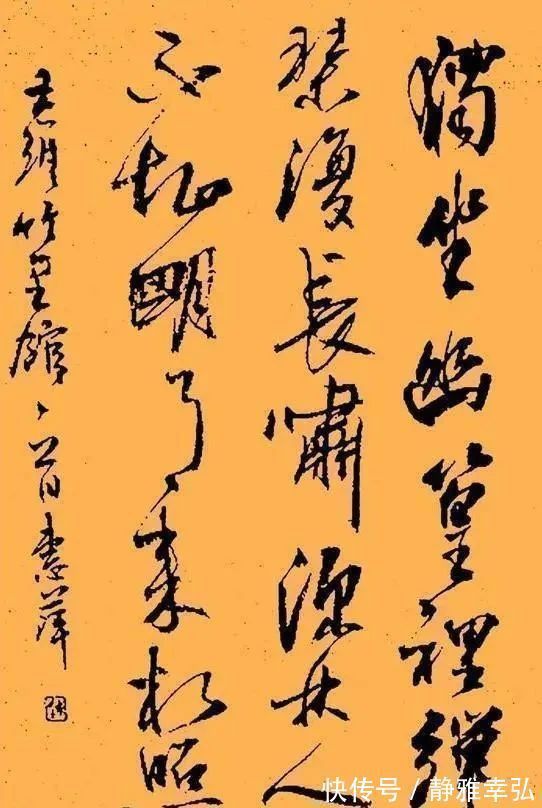 獨坐幽篁裡彈
琴復長嘯深林人
不知明月來相照
維竹里館
快传号 / 静雅幸弘